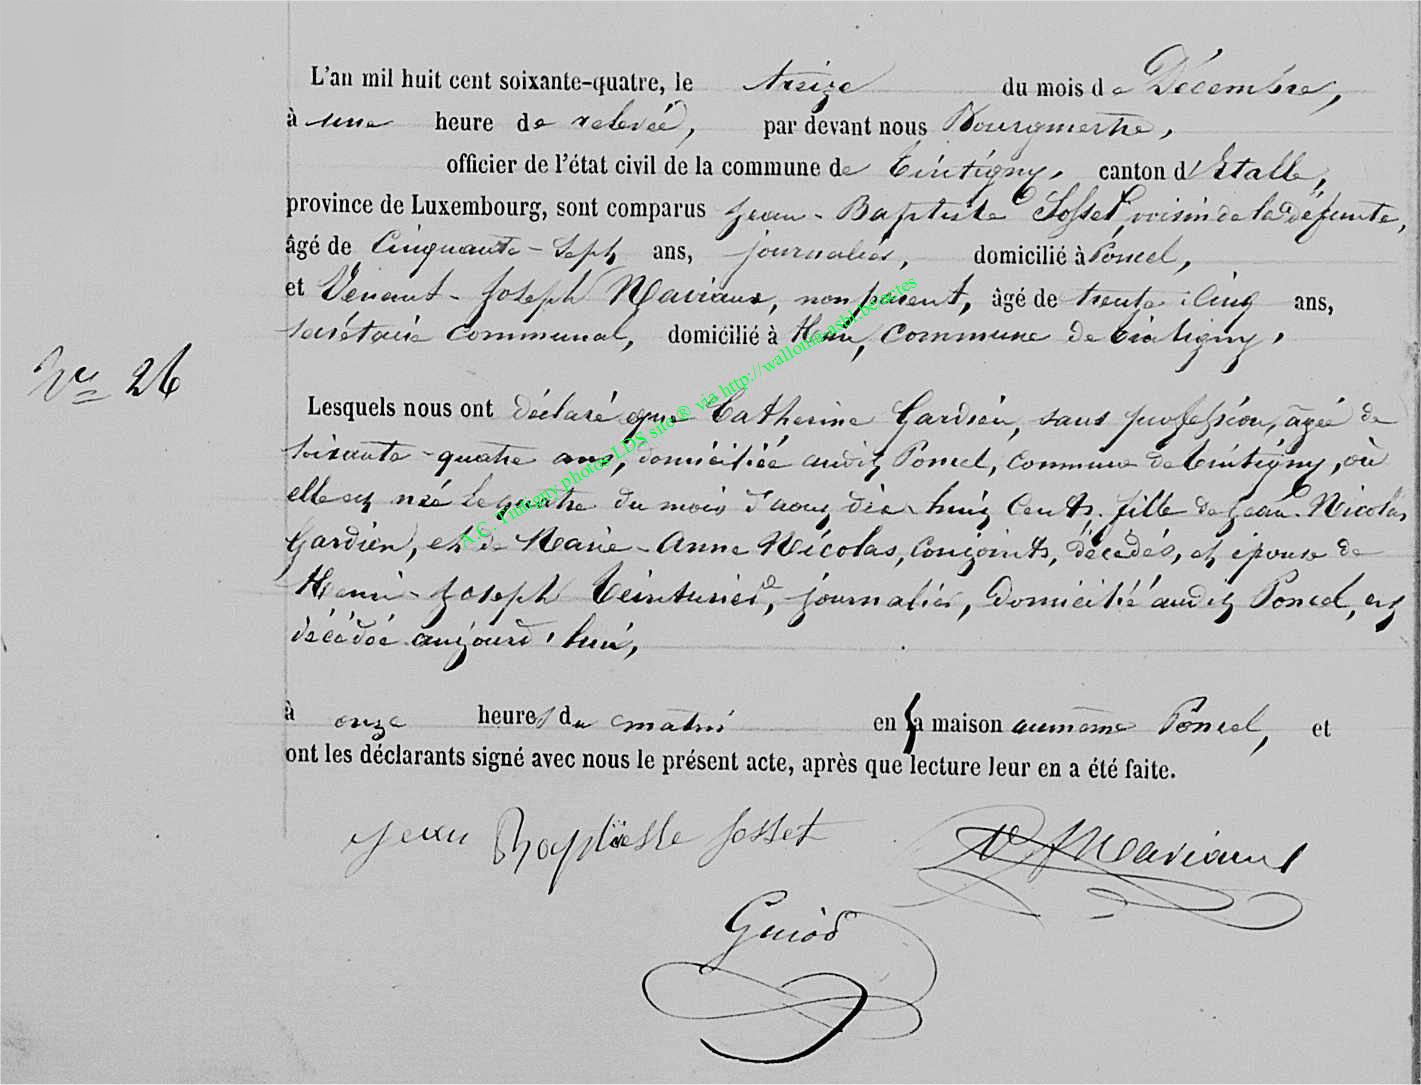 L'an mil huit cent soixante-quatre, le treize du mois de Décembre,
à une heure de relevée, par devant nous Bourgmestre,
officier de l'état civil de la commune de Tintigny, canton d'Etalle,
province de Luxembourg, sont comparus Jean-Baptiste Sosset, voisin de la défunte,
âgé de Cinquante-sept ans, journalier, domicilié à Poncel,
et Venant-Joseph Maviaux, non parent, âgé de trente cinq ans,
secrétaire communal, domicilié à Han, commune de Tintigny,
N° 26
Lesquels nous ont déclaré que Catherine Gardien, sans profession, âgée de
soixante-quatre ans, domiciliée audit Poncel, commune de Tintigny, où
elle est née le quatre du mois d'aout dix-huit cents, fille de Jean-Nicolas
Gardien, et de Marie-Anne Nicolas, conjoints, décédés, et épouse de
Henri-Joseph Teinturier, journalier, domicilié audit Poncel, est
décédée aujourd'hui,
à onze heures du matin en sa maison au même Poncel, et
ont les déclarants signé avec nous le présent acte, après que lecture leur en a été faite.
Jean Baptiste Josset
VJMaviaux
Guiod
A.C. Tintigny photos LDS site® via http://wallonia-asbl.be/actes